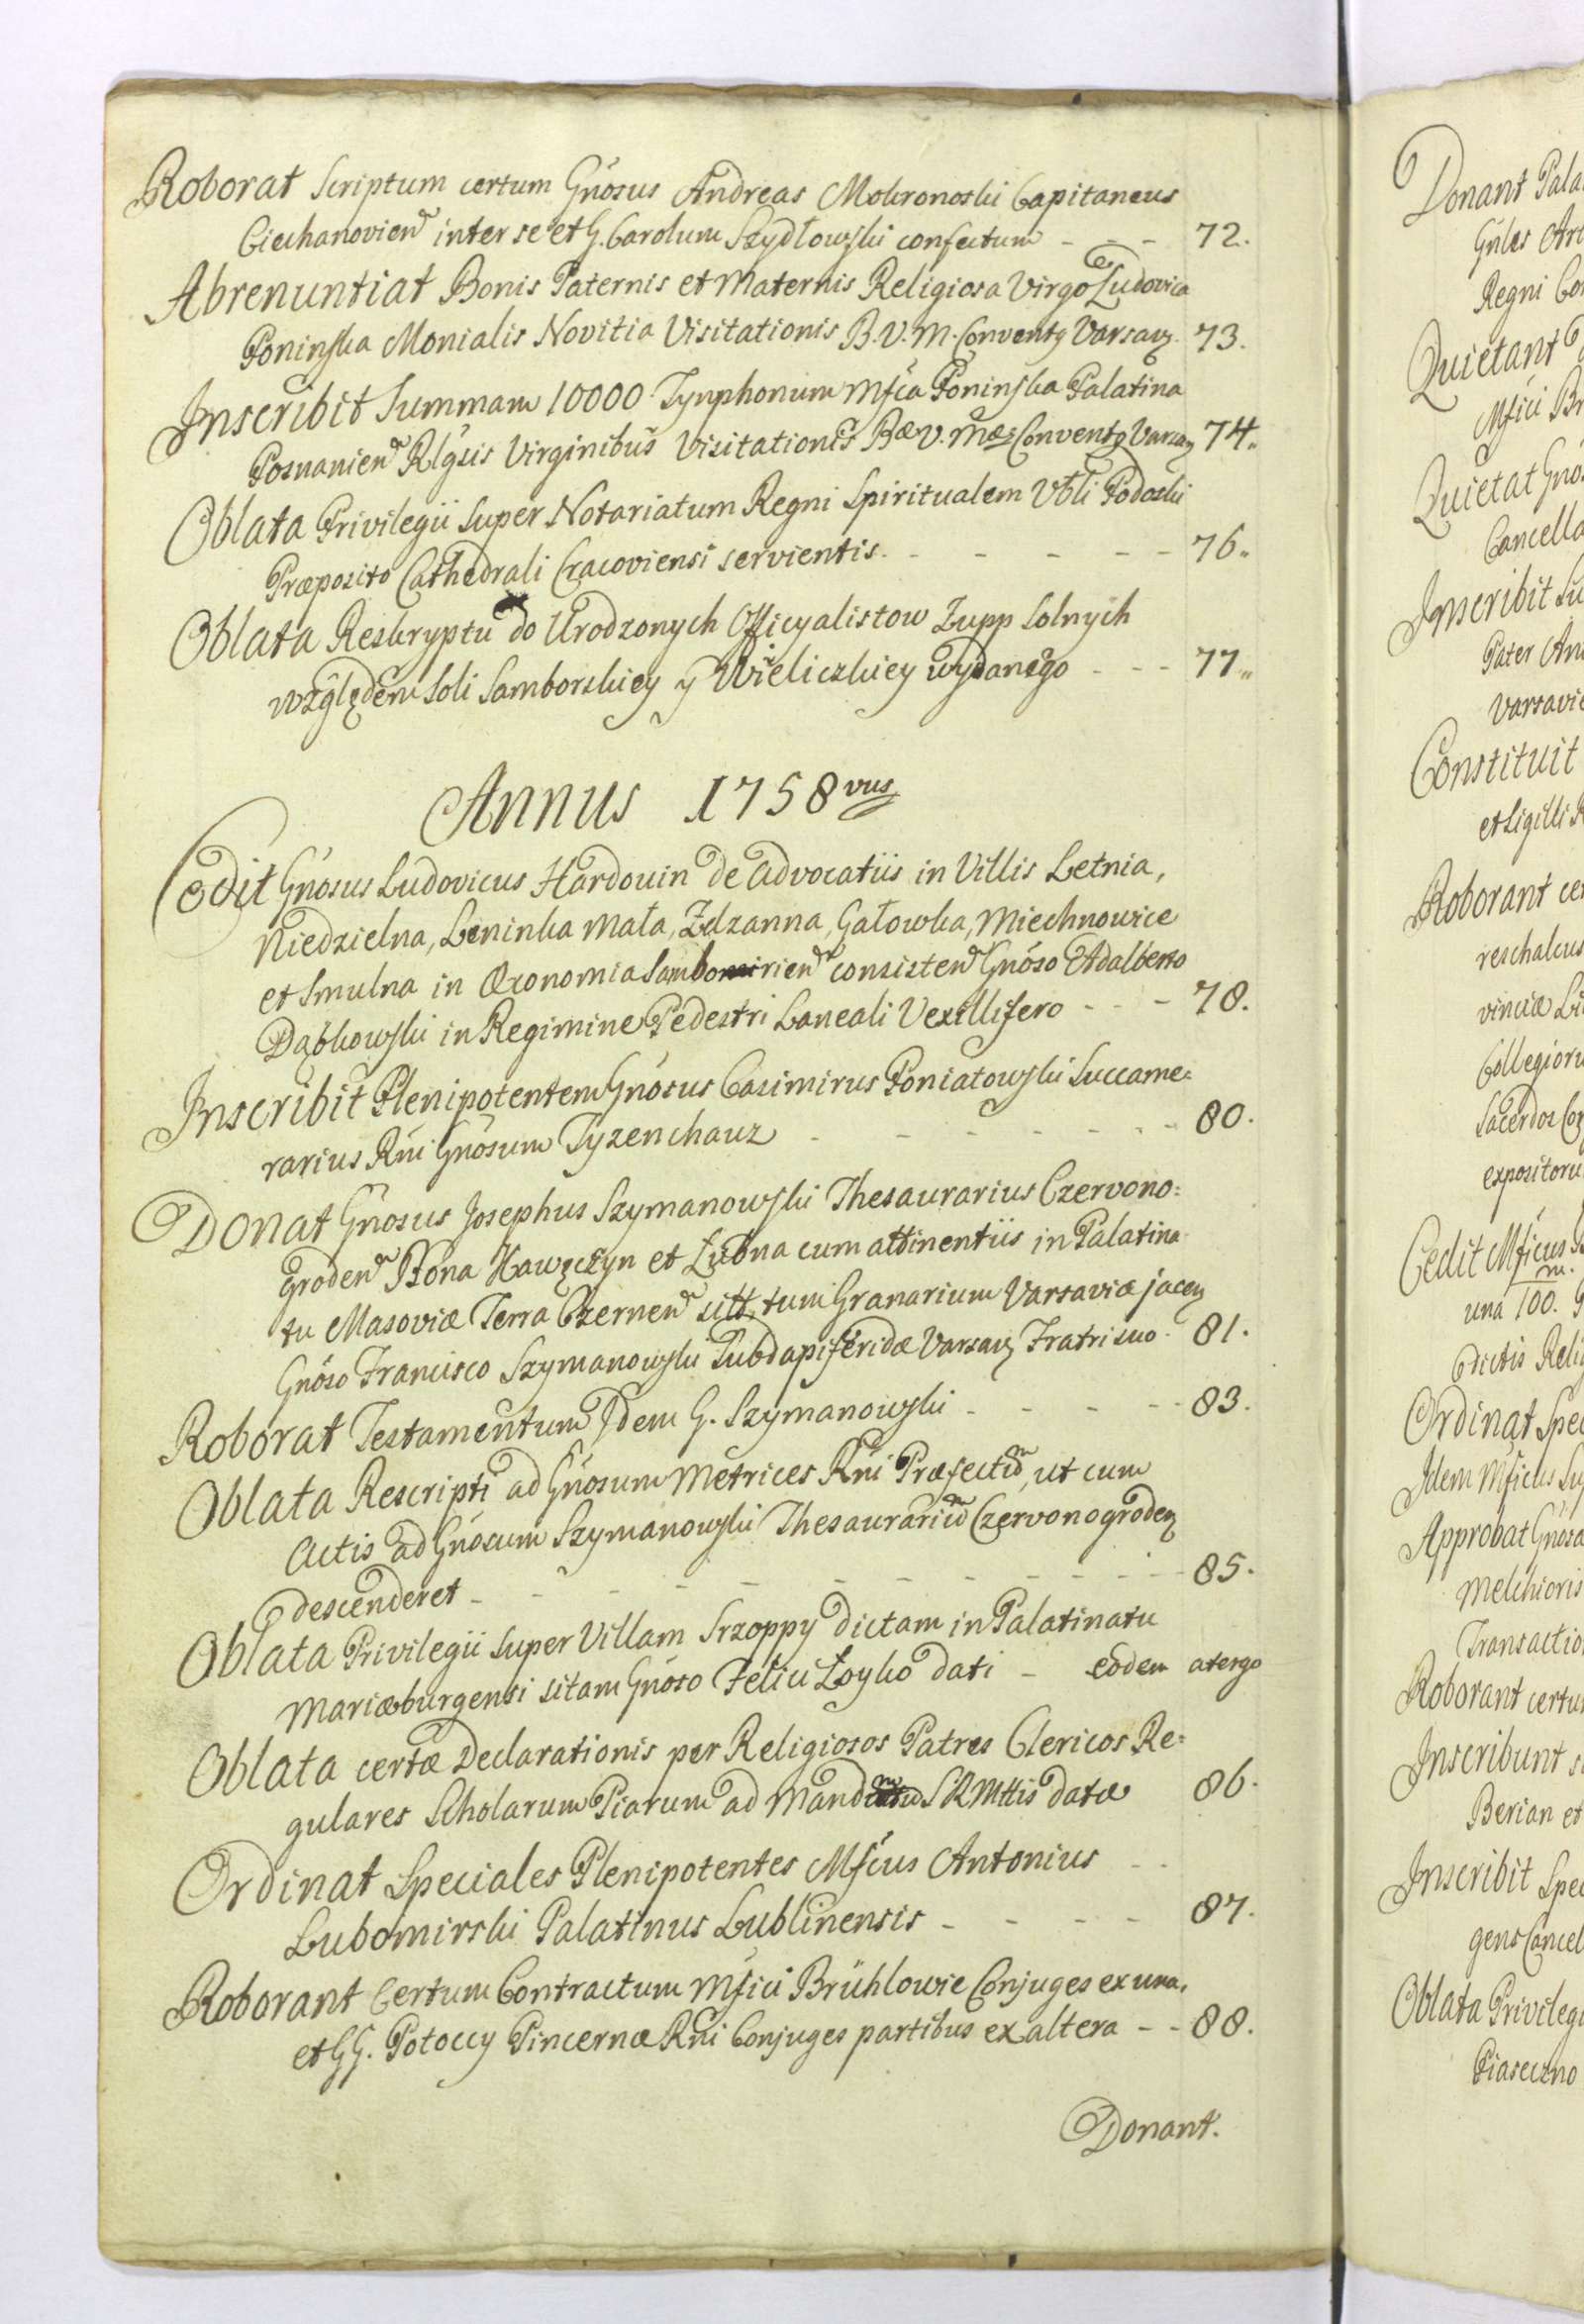 Roborat Scriptum certum Gnosus Andreas Mokronoski Capitaneus
Ciechanovien inter se et G. Carolum Szydłowski confectum - - - 72.
Abrenuntiat Bonis Paternis et Maternis Religiosa Virgo Ludovica
Poninska Monialis Novitia Visitationis B. V. M. Convents Varsav. 73.
Inscribit Summam 10000 Tynphonum Mfca Poninska Palatina
Posnanien Rlgsis Virginibus Visitationis Bæ V. Mæ: Convents Varsav 74.
Oblata Privilegii super Notariatum Regni Spiritualem Vbli Podoski
Præposito Cathedrali Cracoviensi servientis. - - - - - 76.
Oblata Reskryptu do Urodzonych Officyalistow Zupp Solnych
względem Soli Samborskiey y Wieliczkiey wydanego - - - 77.
Annus 1758vus
Cedit Gnosus Ludovicus Hardouin de Advocatiis in Villis Letnia,
Niedzielna, Leninka Mała, Zdzanna, Gałowka, Miechnowice
et Smulna in Œconomia Samborien consisten Gnoso Adalberto
Dąbkowski in Regimine Pedestri Laneali Vexillifero - - - 78.
Inscribit Plenipotentem Gnosus Casimirus Poniatowski Succame:
rarius Rni Gnosum Tyzenchauz - - - - - - - 80.
Donat Gnosus Josephus Szymanowski Thesaurarius Czervono:
groden Bona Hawęczyn et Łubna cum attinentiis in Palatina
tu Masoviæ Terra Czernen sitt, tum Granarium Varsaviæ jacen
Gnoso Francisco Szymanowski Subdapiferidæ Varsav Fratri suo. 81.
Roborat Testamentum Idem G. Szymanowski - - - - 83.
Oblata Rescripti ad Gnosum Metrices Rni Præfectum, ut cum
Actis ad Gnosum Szymanowski Thesaurarium Czervonogroden
descenderet - - - - - - - - - - 85.
Oblata Privilegii super Villam Srzoppy dictam in Palatinatu
Mariæburgensi sitam Gnoso Felici Łoyko dati - eodem atergo
Oblata certæ Declarationis per Religiosos Patres Clericos Re:
gulares Scholarum Piarum ad Mandatum S R Mttis datæ 86.
Ordinat Speciales Plenipotentes Mfcus Antonius - -
Lubomirski Palatinus Lublinensis - - - - 87.
Roborant Certum Contractum Mfici Brühlowie Conjuges ex una,
et GG. Potoccy Pincernæ Rni Conjuges partibus ex altera - - 88.
Donant.
Donant
Gnles
Regni
Quietant
Mfici
Quietat
Inscribit
Pater
Constituit
et Sigilli
Roborant
Cedit Mficus
una 100.
Ordinat
Idem Mficus
Approbat
Melchioris
Roborant
Inscribunt
Berian et
Inscribit
Oblata
Piaseczno